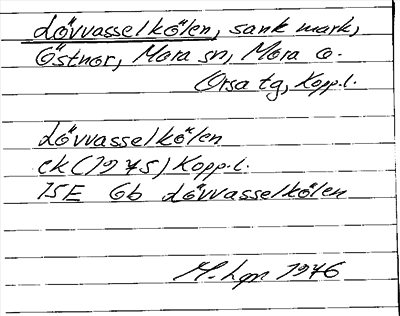 Lövvasselkölen, sank mark,
Östnor, Mora sn, Mora o.
Orsa tg, Kopp.l.
Lövvasselkölen
ek (1975) Kopp.l.
15E 6b Lövvasselkölen
M. Lgn 1976